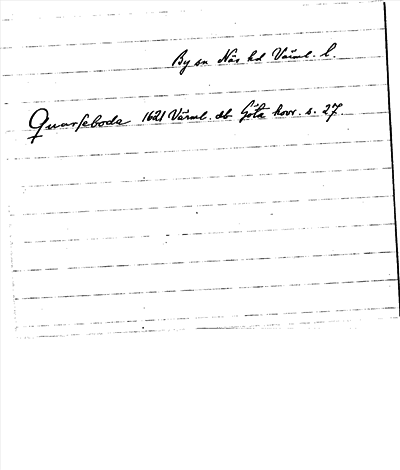 By sn Näs hd Värml. l.
Quarseboda 1621 Värml. db Göta hovr. s. 27.